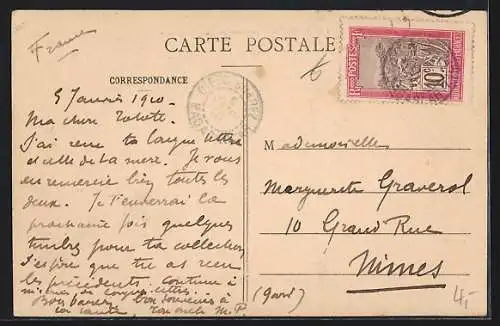 France
CARTE POSTALE
CORRESPONDANCE
5 Janvier 1910.
Ma chère
J'ai reçu ta longue lettre
et celle de ta mère. Je vous
en remercie bien toutes les
deux. Je t'enverrai la
prochaine fois quelques
timbres pour ta collection
J'espère que tu as reçu
les précédents. Continue à
m'écrire de longues lettres.
Bons baisers, bon souvenir à
ton oncle M.P
POSTES
10
Mademoiselle
Marguerite Graverol
10 Grand Rue
Nîmes
(Gard)
4,-